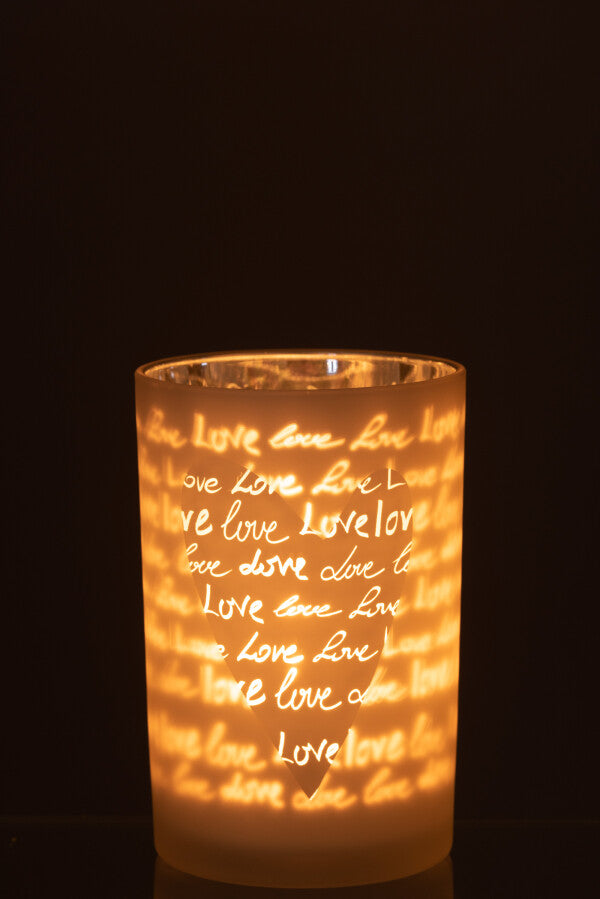 Love Love love Love Love
ove Love Love L
ve love Love love
love Love Love l
Love love Love
Love Love L
love love Love
Love love
Love Love love